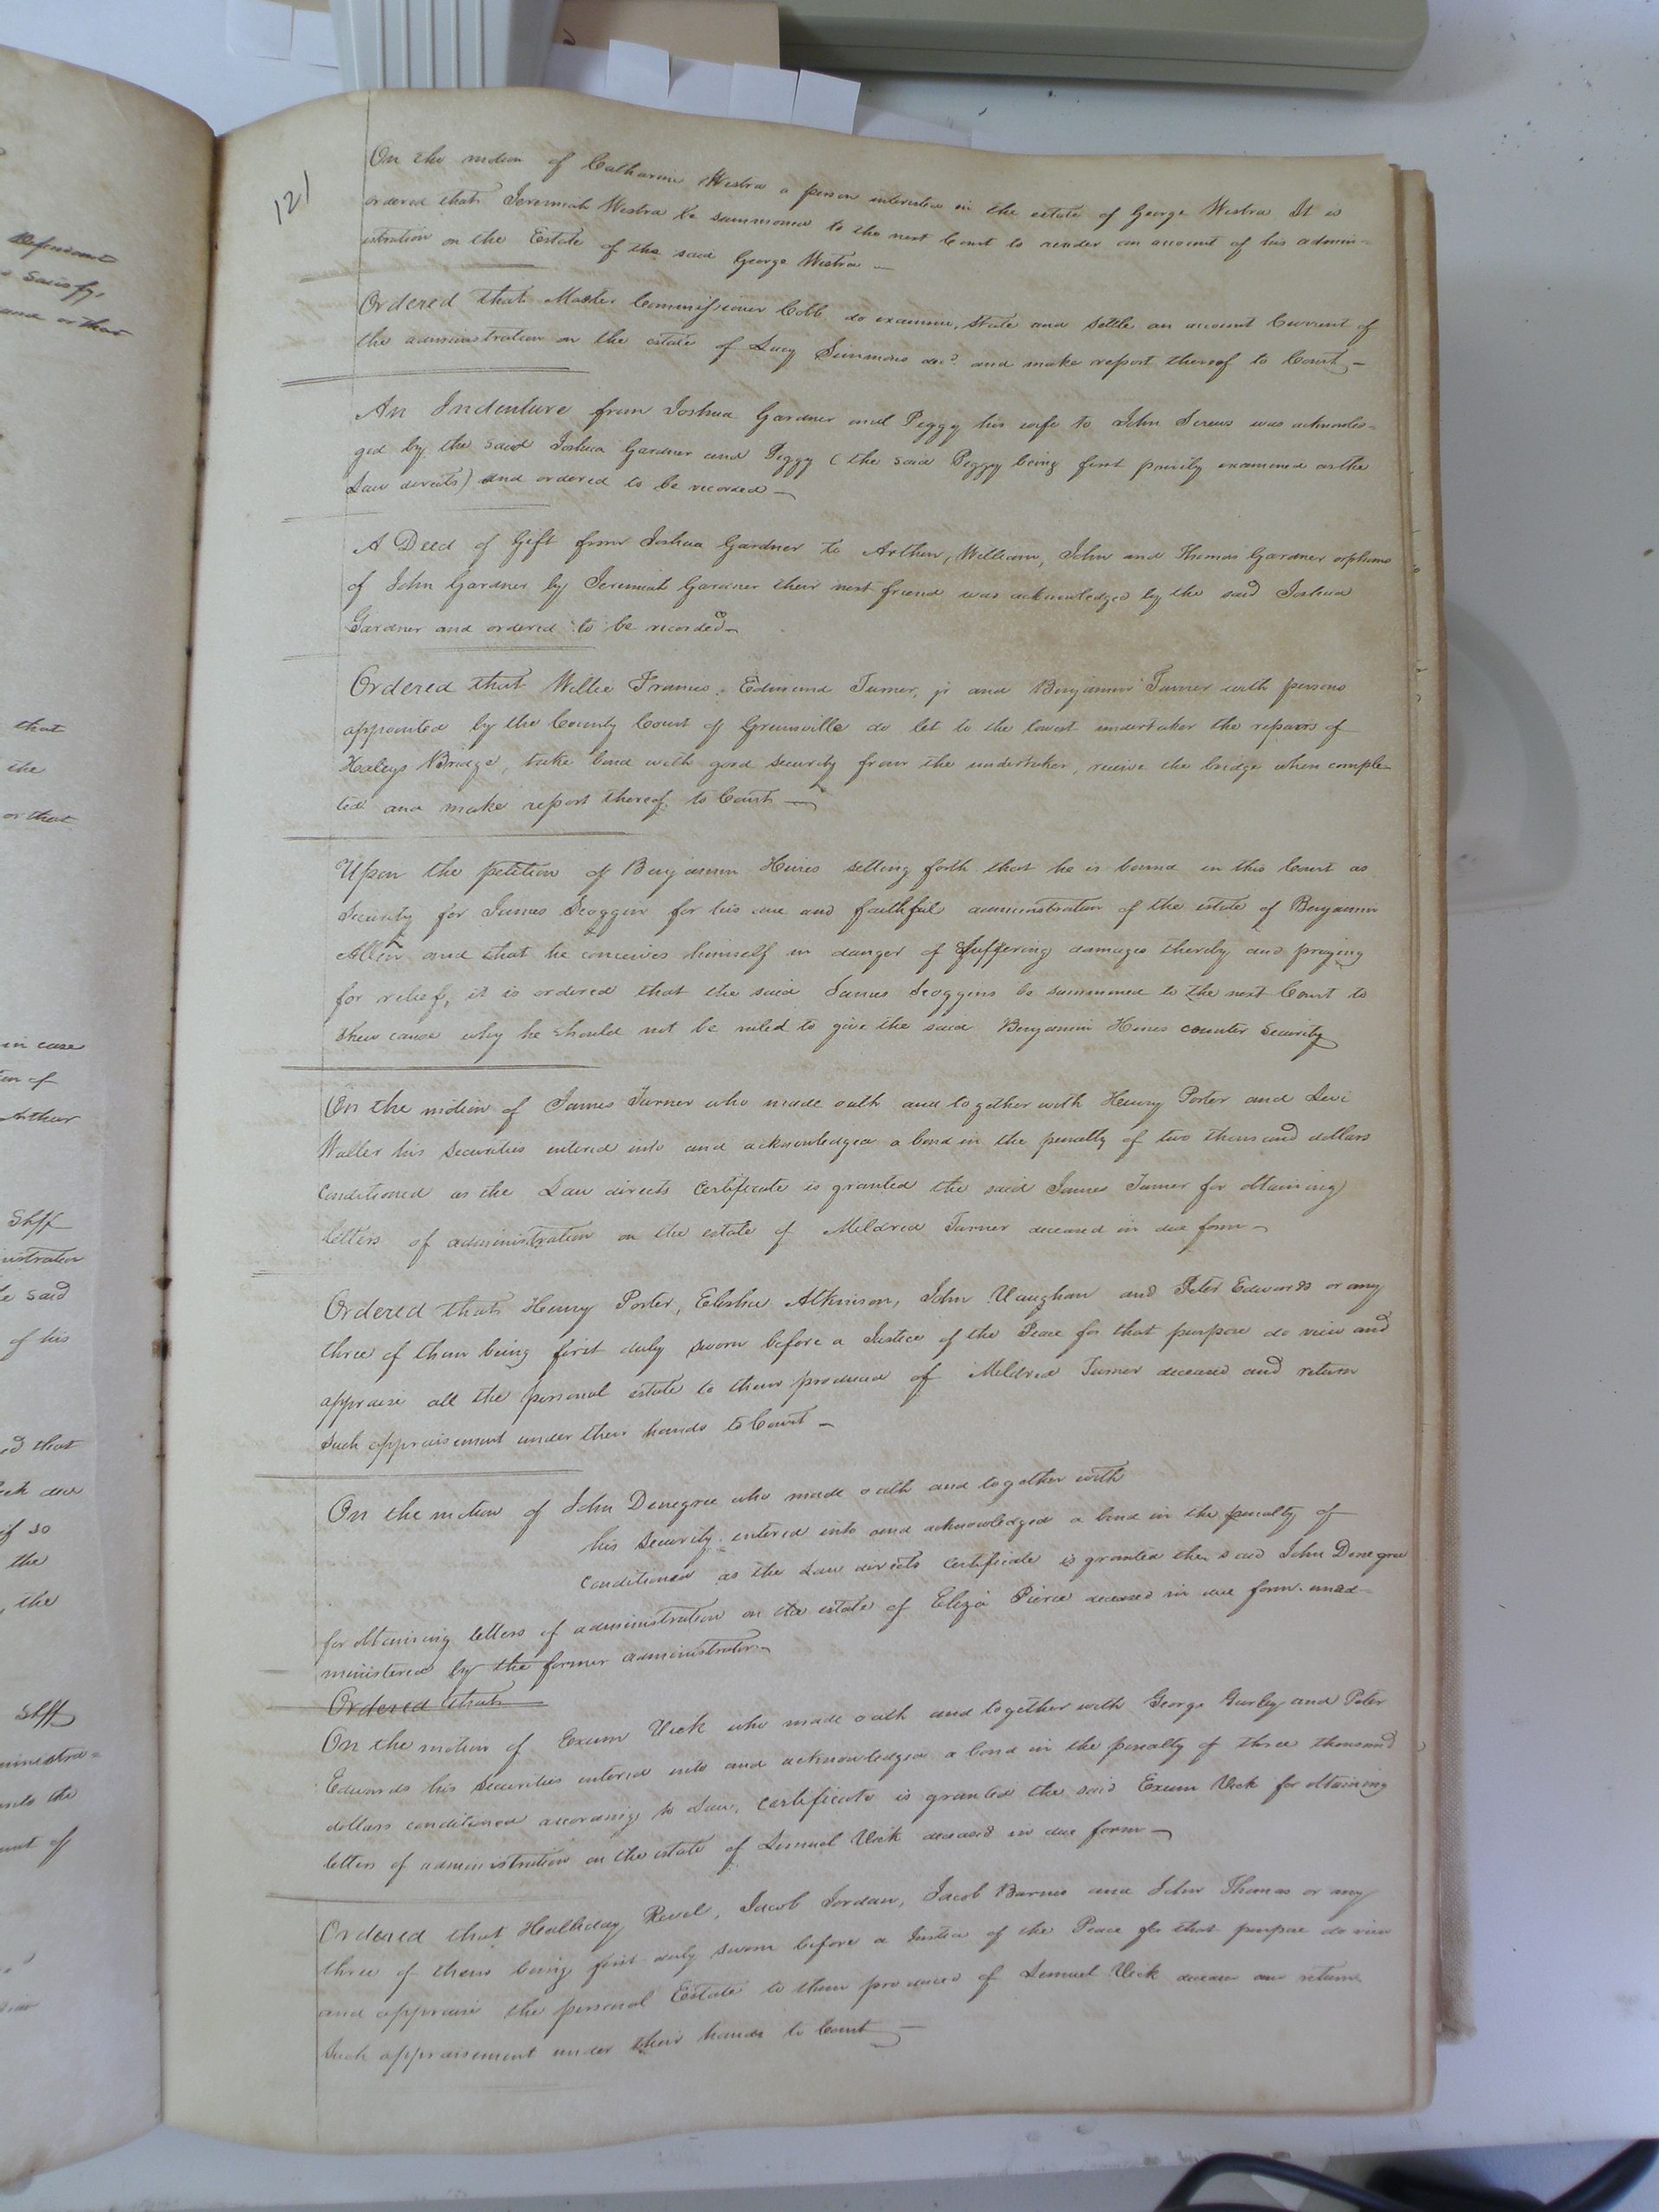 Defendant
satisfy,
and or that
that
the
or that
in case
Arthur
Shff
istration
said
of his
ed that
if so
the
, the
Shff
ministra=
121
On the motion of Catharine Westra a person interested in the estate of George Westra It is
ordered that Jeremiah Westra be summoned to the next Court to render an account of his admin=
istration on the Estate of the said George Westra
Ordered that Master Commissioner Cobb do examine, state and settle an account Current of
the administration on the estate of Lucy Simmons decd. and make report thereof to Court
An Indenture from Joshua Gardner and Peggy his wife to John Screws was acknowled=
ged by the said Joshua Gardner and Peggy (the said Peggy being first privily examined as the
Law directs) and ordered to be recorded
A Deed of Gift from Joshua Gardner to Arthur, William, John and Thomas Gardner orphans
of John Gardner by Jeremiah Gardner their next friend was acknowledged by the said Joshua
Gardner and ordered to be recorded
Ordered that Willie Francis, Edmund Turner, jr and Benjamin Turner with persons
appointed by the County Court of Greensville do let to the lowest undertaker the repairs of
Haleys Bridge, take bond with good security from the undertaker, receive the bridge when comple-
ted and make report thereof to Court
Upon the petition of Benjamin Hines setting forth that he is bound in this Court as
Security for James Scoggin for his due and faithful administration of the estate of Benjamin
Allen and that he conceives himself in danger of suffering damages thereby and praying
for relief, it is ordered that the said James Scoggins be summoned to the next Court to
shew cause why he should not be ruled to give the said Benjamin Hines counter security
On the motion of James Turner who made oath and together with Henry Porter and Levi
Waller his securities entered into and acknowledged a bond in the penalty of two thousand dollars
Conditioned as the Law directs Certificate is granted the said James Turner for obtaining
letters of administration on the estate of Mildred Turner deceased in due form
Ordered that Henry Porter, Elisha Atkinson, John Vaughan and Peter Edwards or any
three of them being first duly sworn before a Justice of the Peace for that purpose do view and
appraise all the personal estate to them produced of Mildred Turner deceased and return
such appraisement under their hands to Court
On the motion of John Denegree who made oath and together with
his security entered into and acknowledged a bond in the penalty of
conditioned as the Law directs certificate is granted the said John Denegree
for obtaining letters of administration on the estate of Eliza Pierce deceased in due form unad-
ministered by the former administrator
Ordered that
On the motion of Exum Vick who made oath and together with George Gurley and Peter
Edwards his securities entered into and acknowledged a bond in the penalty of three thousand
dollars conditioned according to Law, certificate is granted the said Exum Vick for obtaining
letters of administration on the estate of Lemuel Vick deceased in due form
Ordered that Halliday Revel, Jacob Jordan, Jacob Barnes and John Thomas or any
three of them being first duly sworn before a Justice of the Peace for that purpose do view
and appraise the personal Estate to them produced of Lemuel Vick deceased and return
such appraisement under their hands to Court